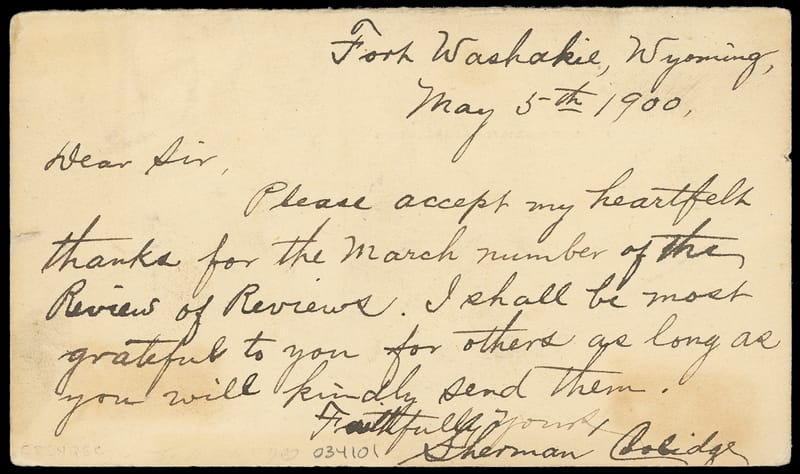 Fort Washakie, Wyoming,
May 5th 1900.
Dear Sir,
Please accept my heartfelt
thanks for the March number of the
Review of Reviews. I shall be most
grateful to you for others as long as
you will kindly send them.
Faithfully yours,
Sherman Coolidge
034101